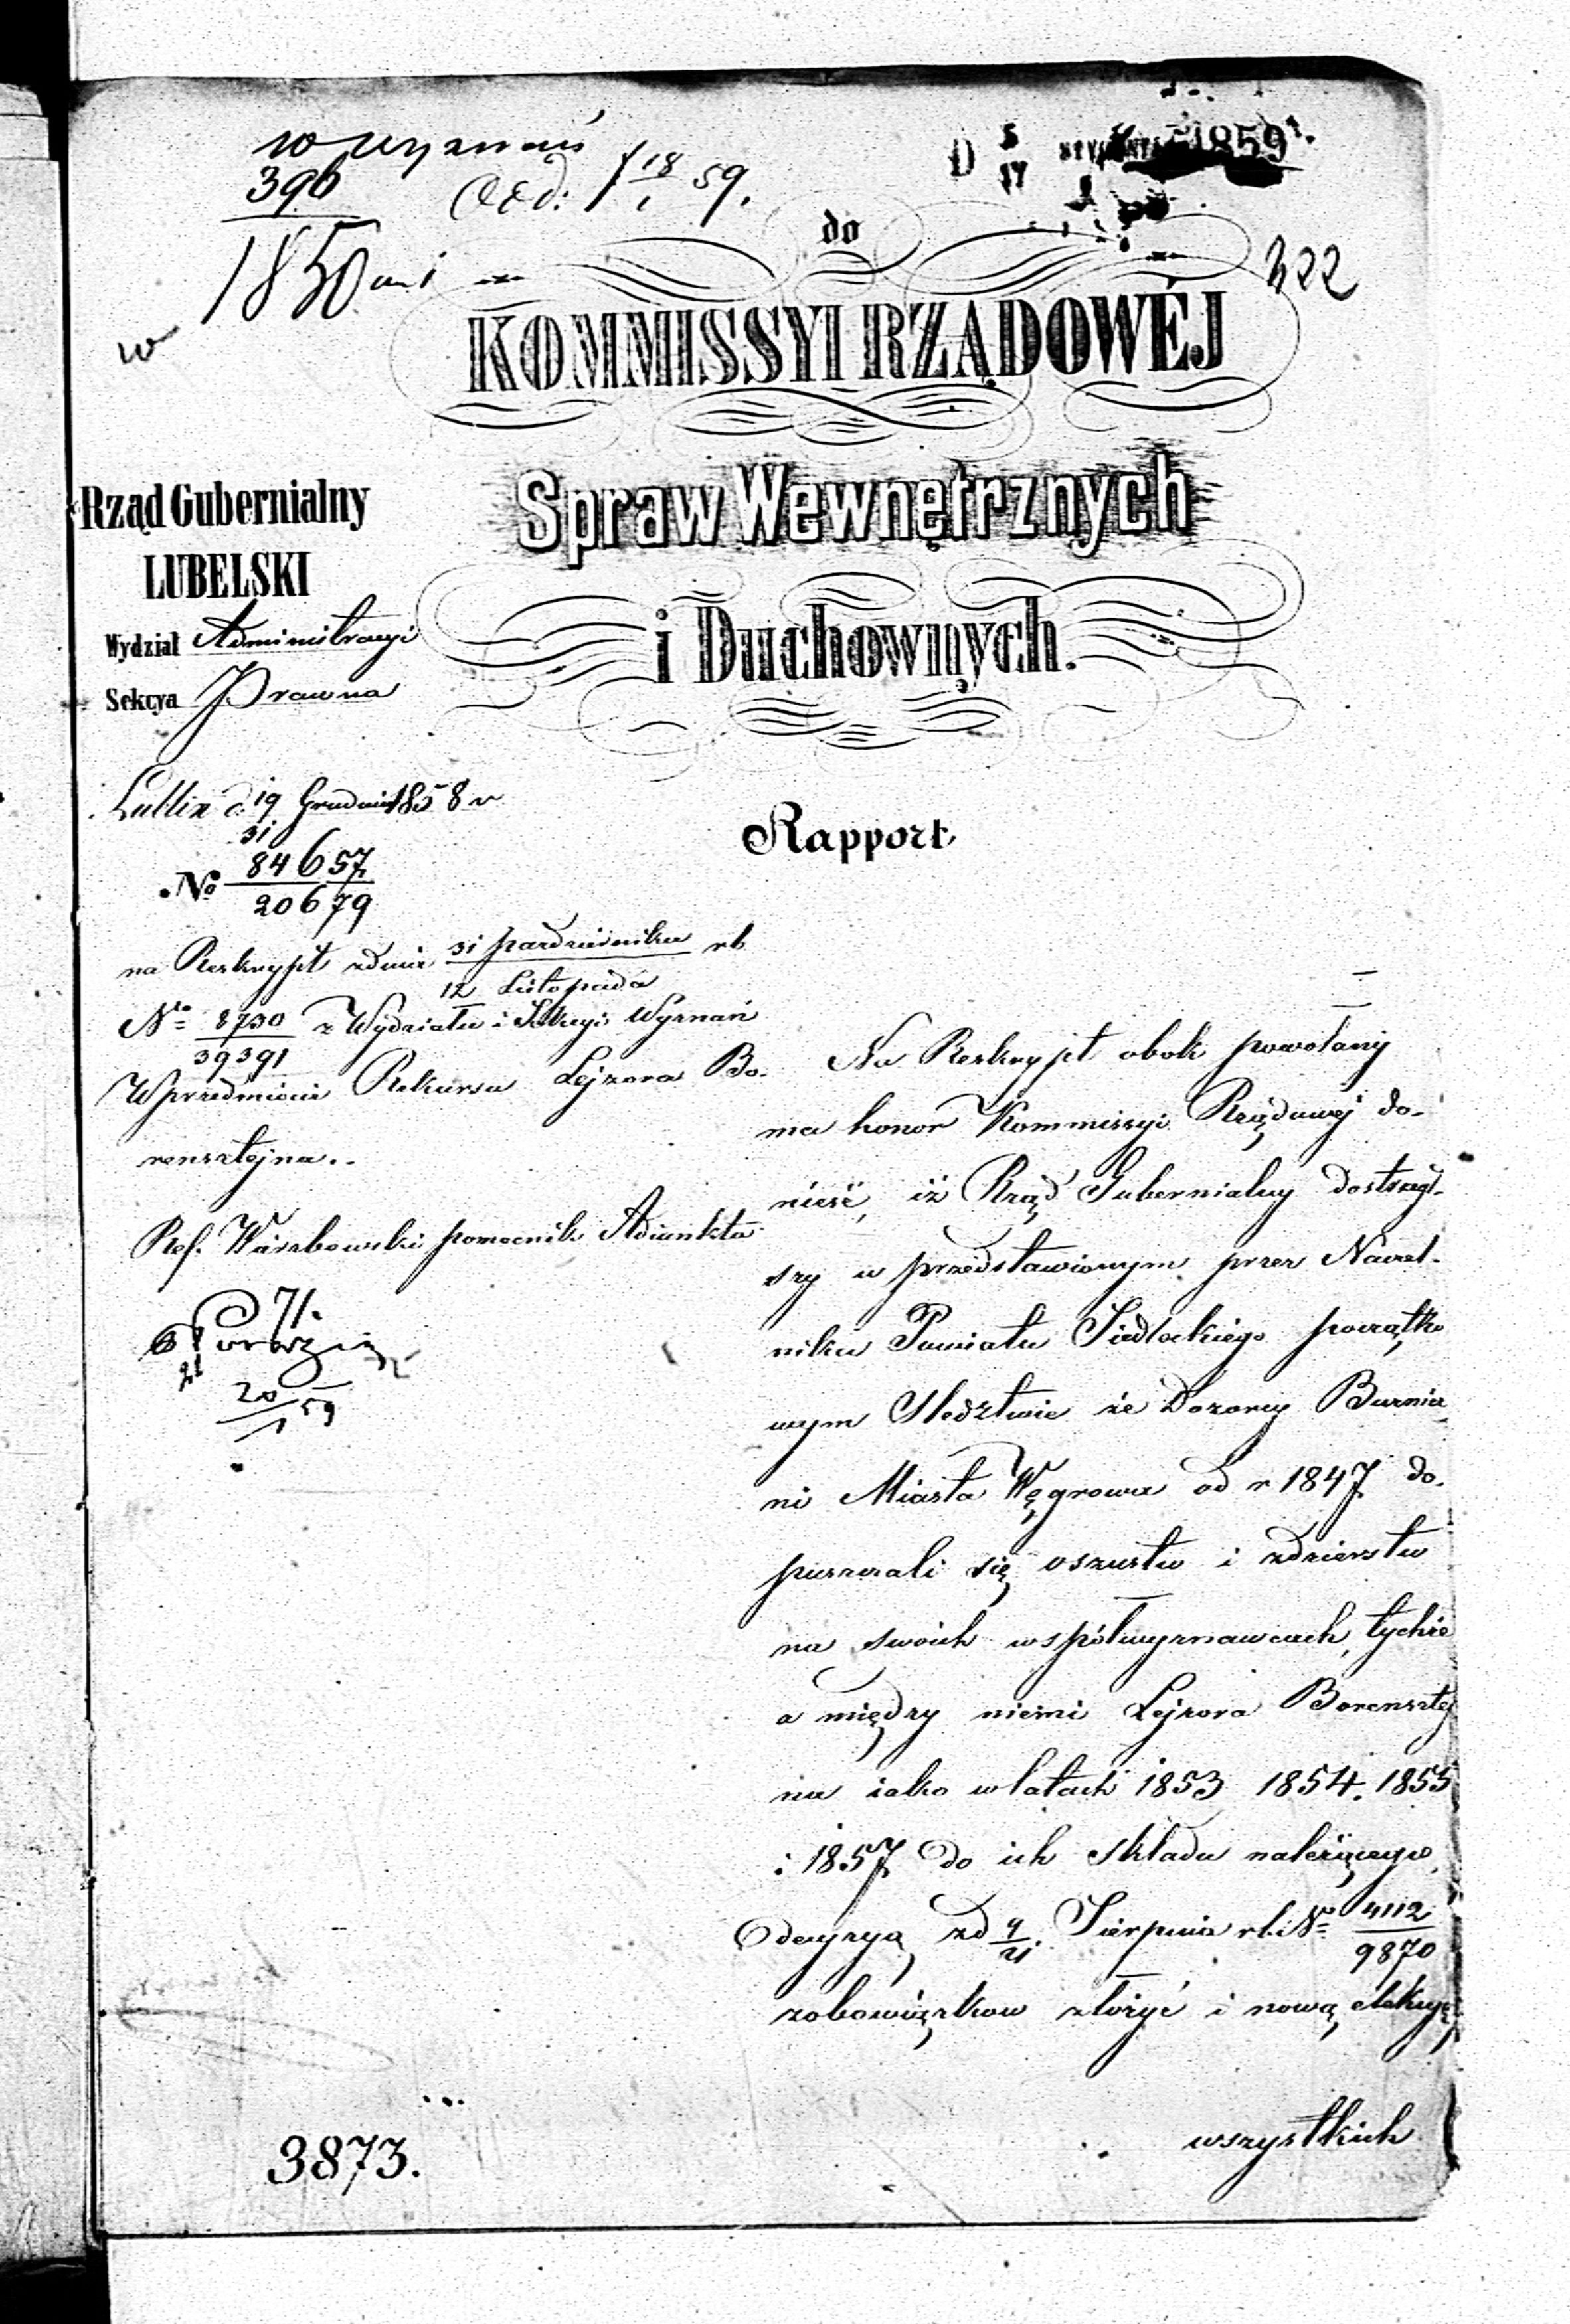 w wyznań
396
1850
Odd: 18/1 59.
D 5/17 STYCZNIA 1859 r.
322
w
do
KOMMISSYI RZĄDOWÉJ
Spraw Wewnętrznych
i Duchownych.
Rząd Gubernialny
LUBELSKI
Wydział Administracyi
Sekcya Prawna
Lublin d. 19/31 Grudnia 1858 r
№ 84657
20679
na Reskrypt z dnia 31 października / 12 Listopada rb
N° 8730/39391 z Wydziału i Sekcyi Wyznań
W przedmiocie Rekursu Lejzora Bo-
rensztejna..
Ref. Wierzbowski pomocnik Adiunkta
71.
20/1 59
Rapport
Na Reskrypt obok powołany
ma honor Kommissyi Rządowej do-
nieść, iż Rząd Gubernialny dostrzegł-
szy w przedstawionym przez Naczel-
nika Powiatu Siedleckiego początko
wym Sledztwie że Dozorcy Bużnicz
ni Miasta Węgrowa od r 1847 do-
puszczali się oszustw i zdzierstw
na swoich współwyznawcach, tychże
a między niemi Lejzora Borensztej
na iako w latach 1853 1854. 1855
i 1857 do ich składu należącego,
decyzyą z d 9/21 Sierpnia rb. N° 4112/9870
z obowiązkow złożyć i nową elekcyę
wszystkich
3873.